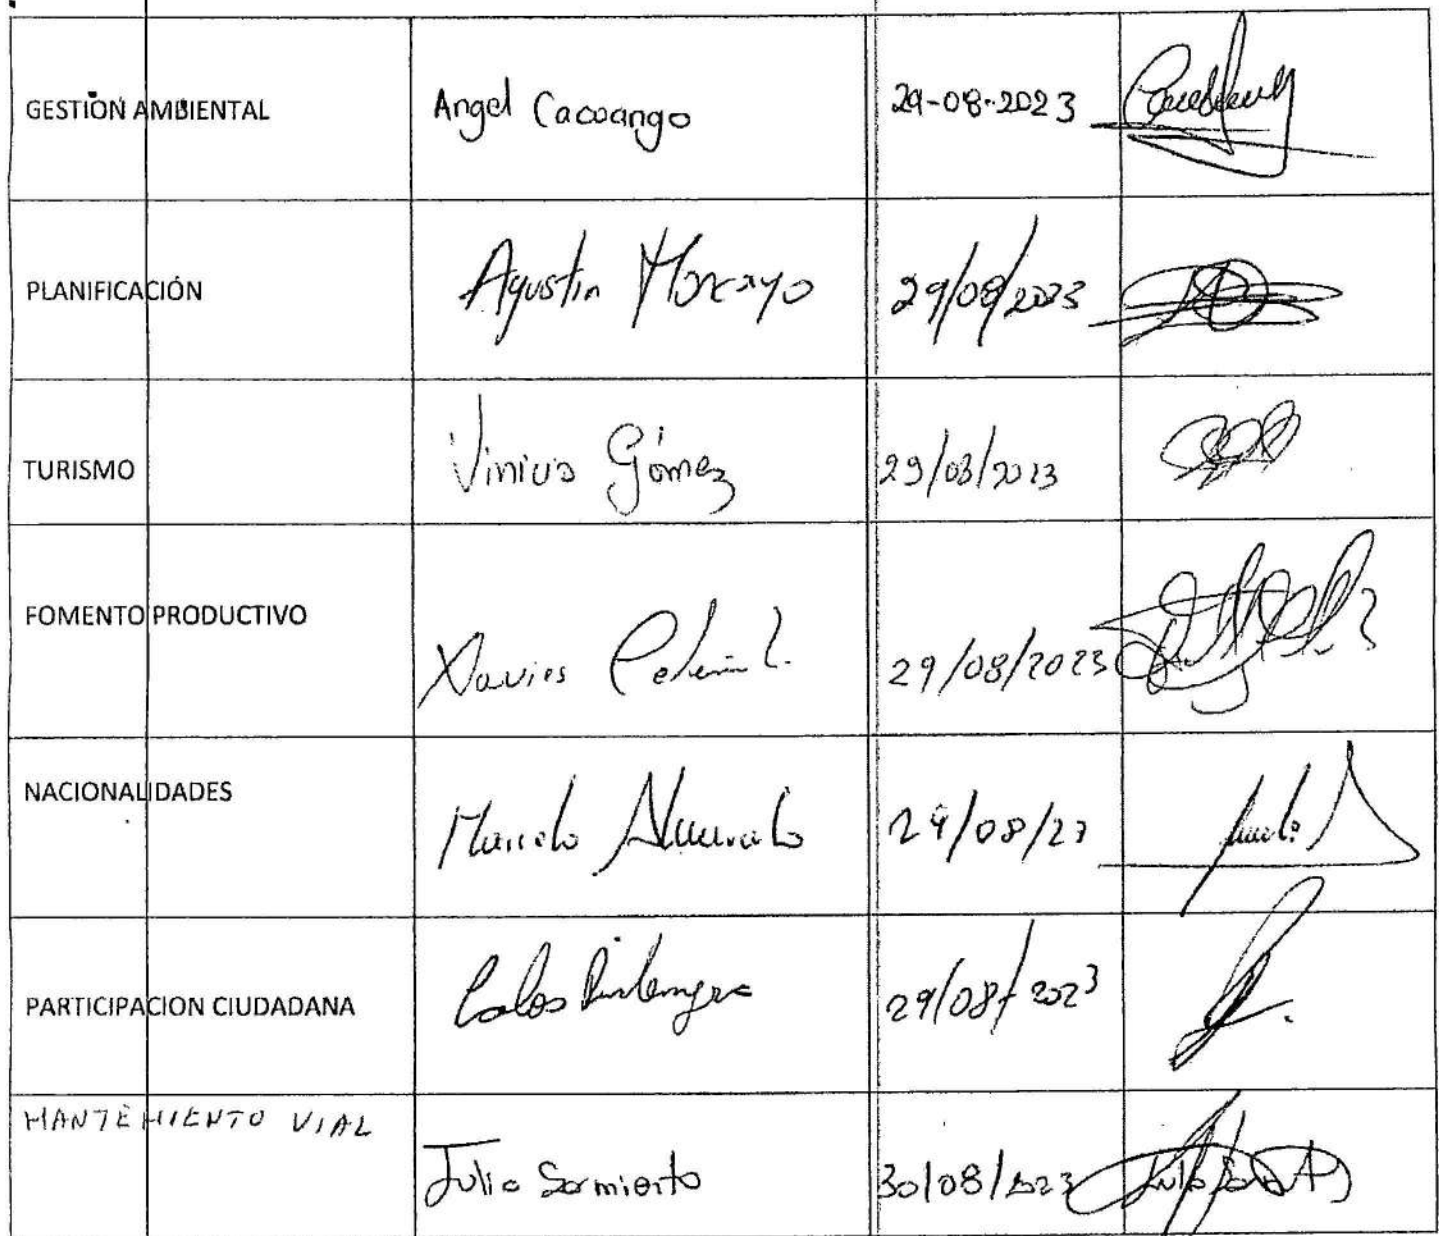 GESTIÓN AMBIENTAL Angel Cacuango 29-08-2023
PLANIFICACIÓN Agustin Moncayo 29/08/2023
TURISMO Vinicio Gómez 29/08/2023
FOMENTO PRODUCTIVO Xavier 29/08/2023
NACIONALIDADES Marcelo 29/08/23
PARTICIPACION CIUDADANA Carlos 29/08/2023
MANTEMIENTO VIAL Julio Sarmiento 30/08/2023